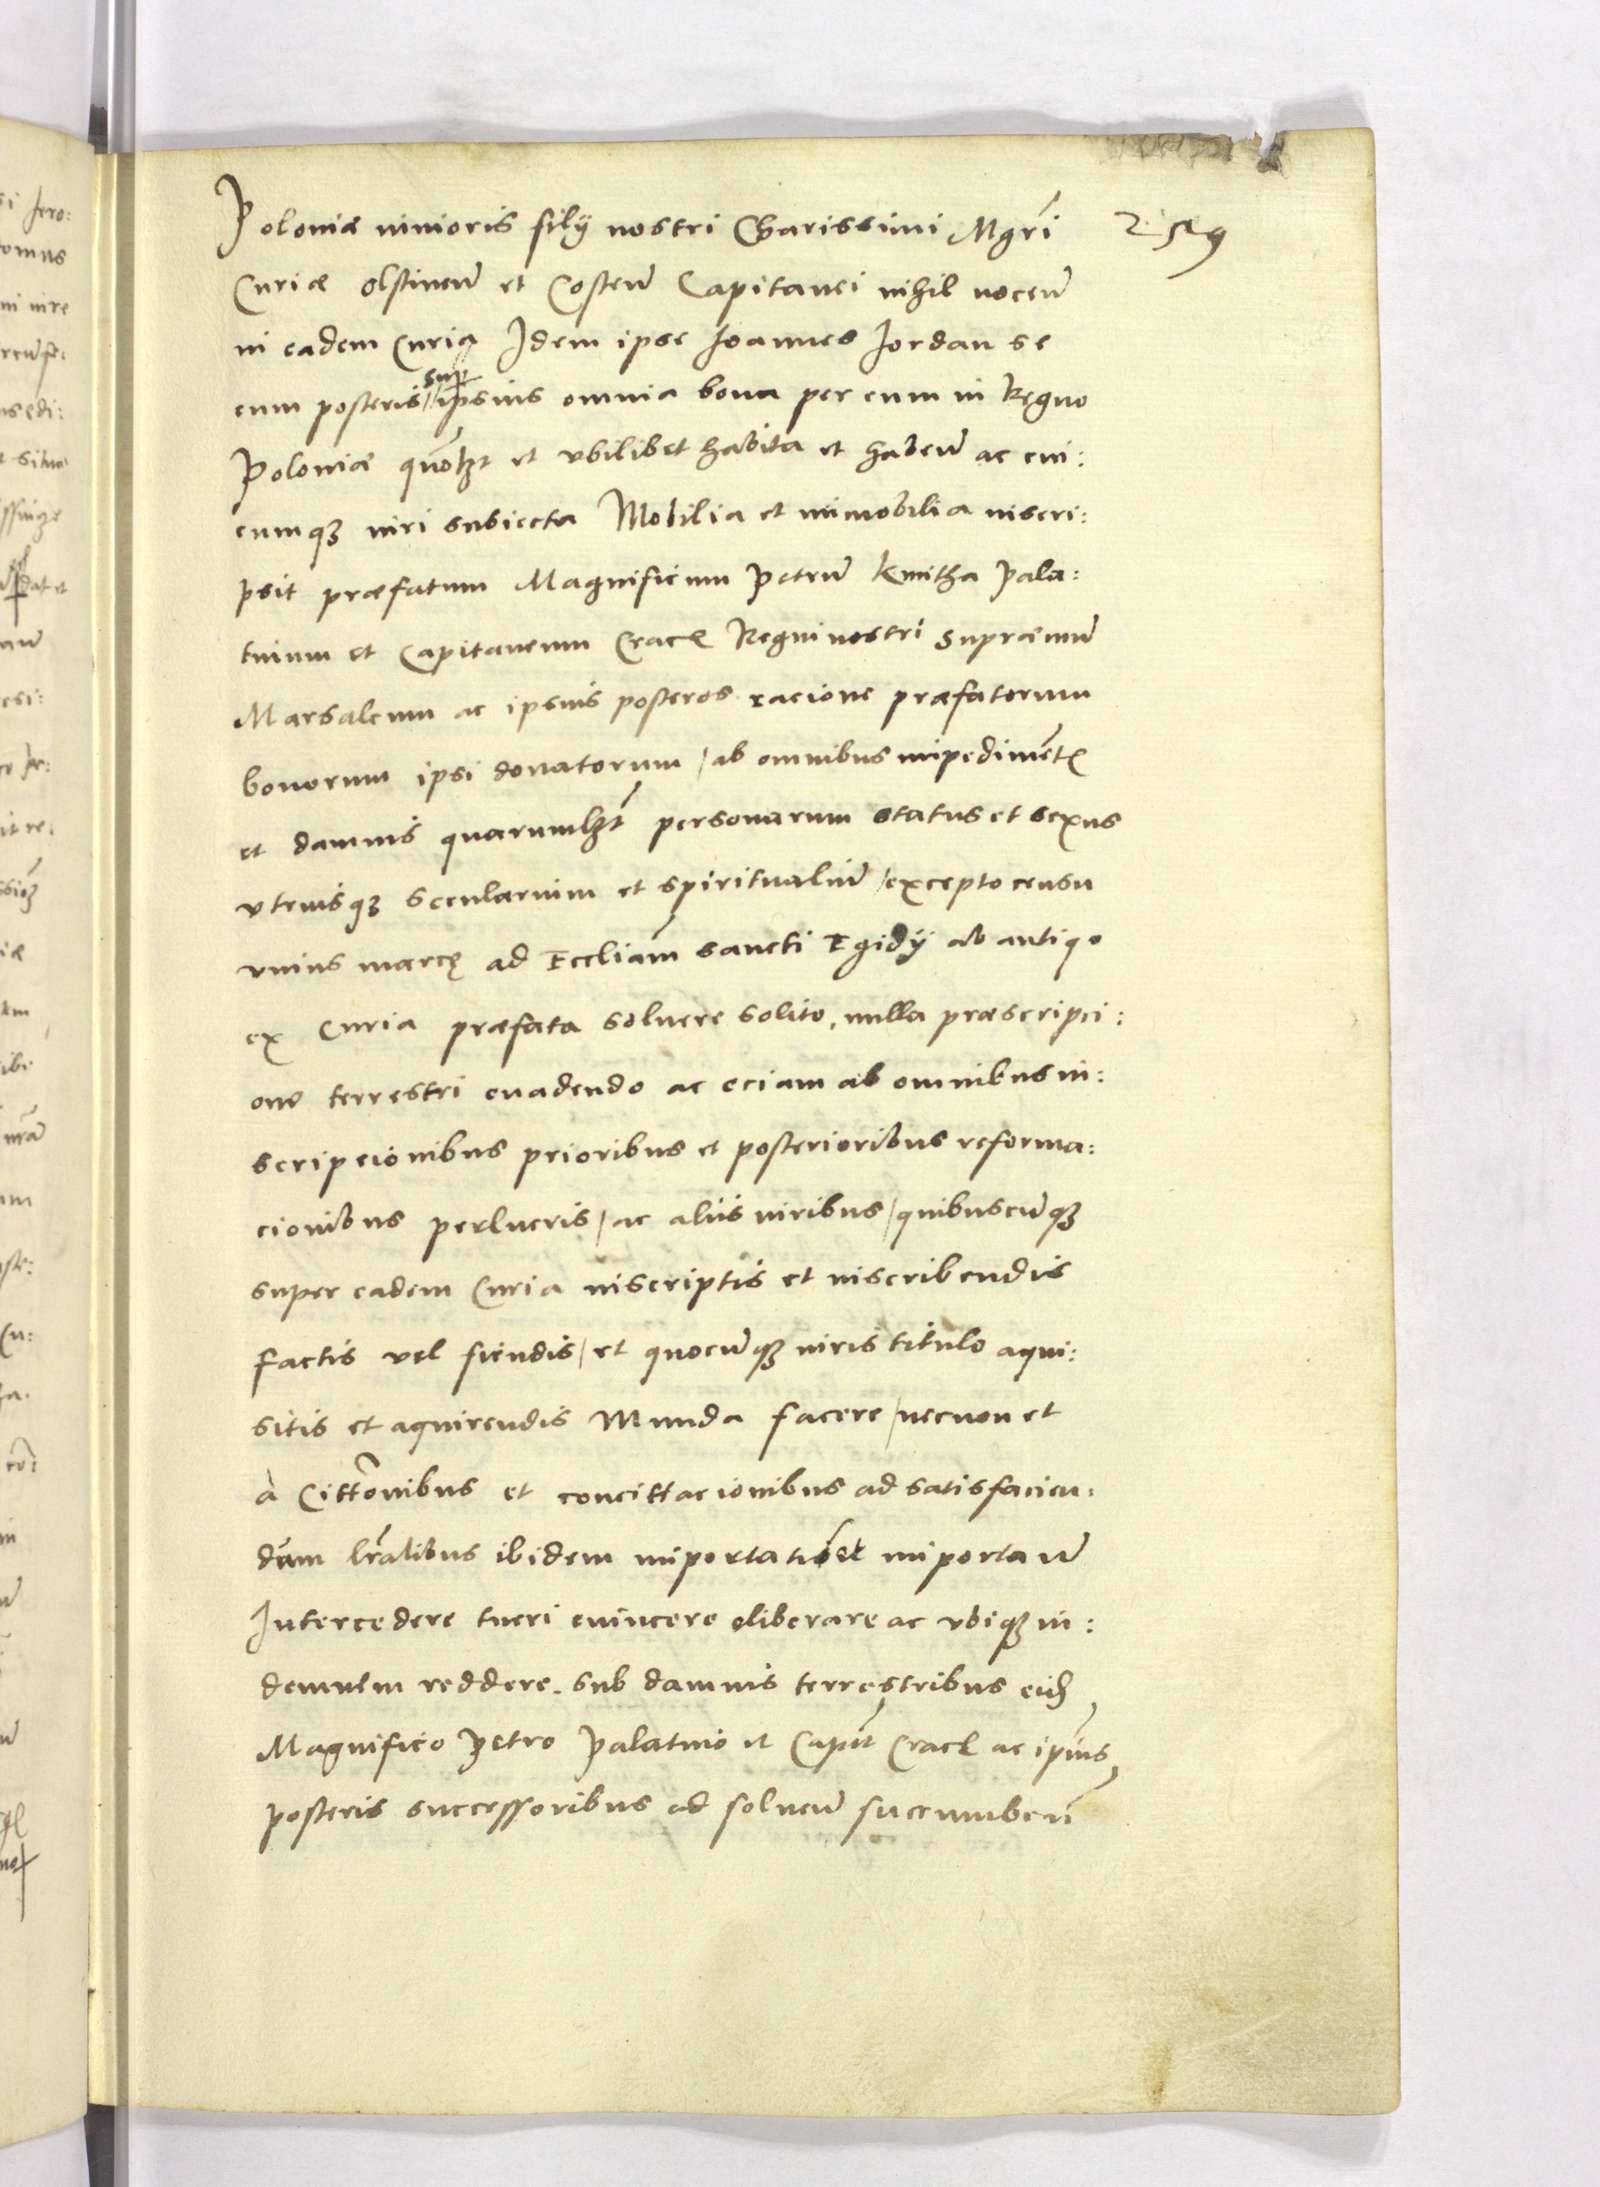 Poloniæ iunioris filij nostri Charissimi Mgri̅ 259
Curiæ Olstinen̅ et Costen̅ Capitanei nihil nocen̅
in eadem Curia Idem ipse Ioannes Iordan se
cum posteris / sup ipsius omnia bona per eum in Regno
Poloniæ quo̅lzt et vbilibet habita et haben̅ ac cui:
cumqꝫ iuri subiecta Mobilia et immobilia inscri:
psit præfatum Magnificum Petru̅ Kmitha Pala:
tinum et Capitaneum Crace̅ Regni nostri supræmu̅
Marsalcum ac ipsius posteros racione præfatorum
bonorum ipsi donatorum / ab omnibus impedime̅t
et damnis quarumlzt̅ personarum status et sexus
vtriusqꝫ secularium et spiritualiu̅ / excepto censu
vnius marcę ad Eccliam̅ sancti Egidij ab antiqo
ex Curia præfata soluere solito, nulla præscripci:
one terrestri euadendo ac eciam ab omnibus in:
scripcionibus prioribus et posterioribus reforma:
cionibus perlucris / ac aliis iuribus / quibuscu̅qꝫ
super eadem Curia inscriptis et inscribendis
factis vel fiendis / et quocu̅qꝫ iuris titulo aqui:
sitis et aquirendis Munda facere / necnon et
à Citto̅nibus et concittacionibus ad satisfacien:
dum lr̅alibus ibidem importatis et importan̅
Intercedere tueri euincere eliberare ac vbiqꝫ in:
demnem reddere. sub damnis terrestribus eid̅
Magnifico Petro Palatino et Capit̅ Crac̅ ac ipius̅
posteris successoribus ad soluen̅ succumben̅